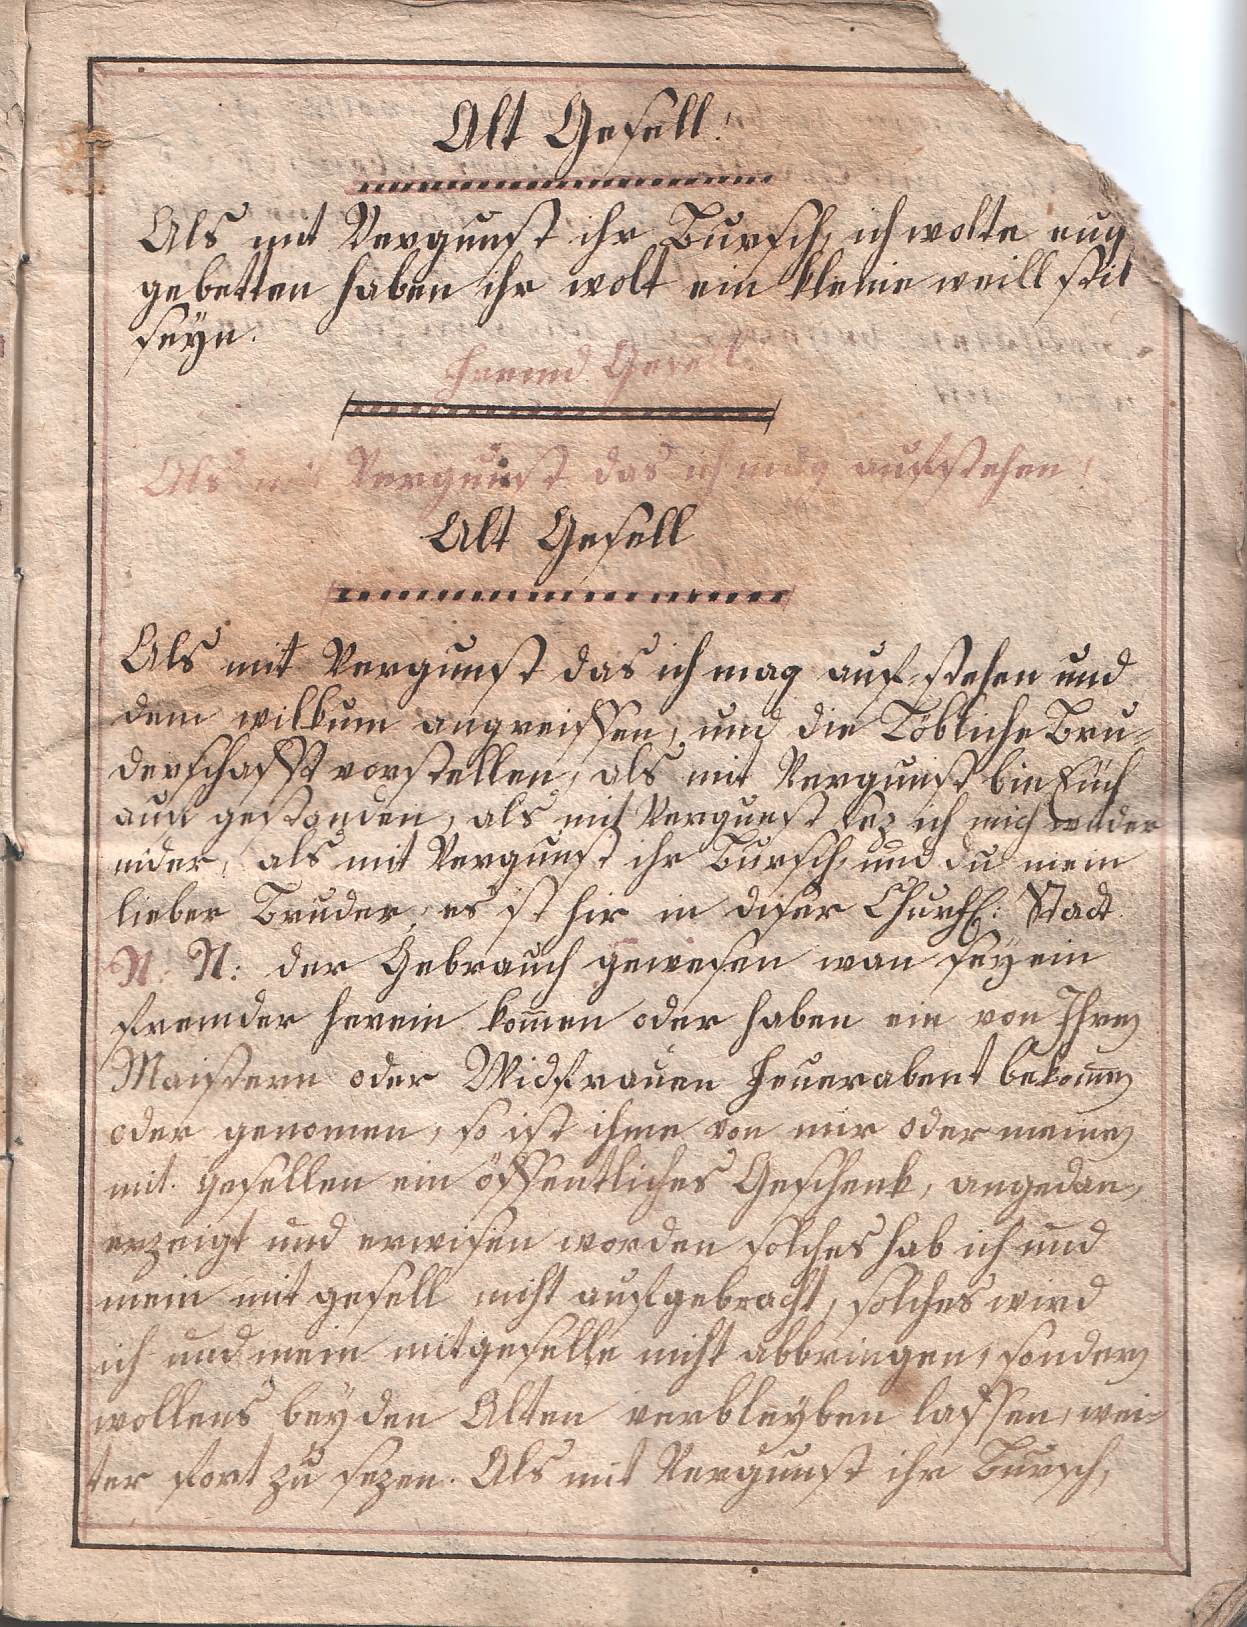 Alt Gesell:
Als mit Vergunst ihr Bursch, ich wolte eug
gebetten haben ihr wolt ein kleine weill stil
seyn.
Fremd Gesell
Als mit Vergunst das ich mag aufstehen!
Alt Gesell
Als mit Vergunst das ich mag auf stehen und
dem wilkum angreiffen, und die Löbliche Bru-
derschafft vorstellen, als mit Vergunst bin Eüch
auf gestanden, als mit Vergunst sez ich mich wider
nider, als mit Vergunst ihr Bursch, und du mein
lieber Bruder, es ist hir in diser Churf: Stadt
N: N: der Gebrauch gewesen wan seÿ ein
fremder herein kom̄en oder haben ein von Ihren
Maistern oder Widfrauen Feuerabent bekom̄en
oder genomen, so ist ihme von mir oder meinen
mit gesellen ein öffentliches Geschenk, angedan,
erzeigt und erwisen worden solches hab ich und
mein mit gesell nicht aufgebracht, solches wird
ich und mein mitgeselle nicht abbringen, sondern
wollens beÿ den Alten verbleÿben lassen, wei-
ter fort zu sezen. Als mit Vergunst ihr Bursch,